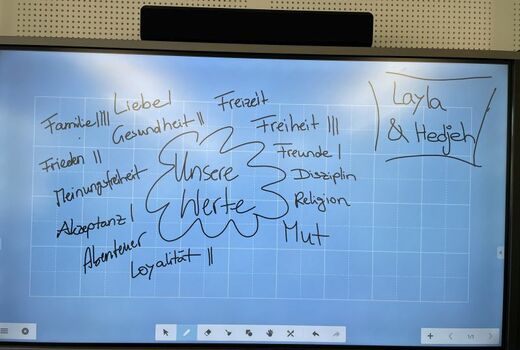 Liebe|
Freizeit
Familie||||
Gesundheit ||
Freiheit |||
Frieden ||
Unsere
Werte
Freunde |
Meinungsfreiheit
Disziplin
Akzeptanz |
Religion
Abenteuer
Mut
Loyalität ||
Layla
& Hedjeh
1/1